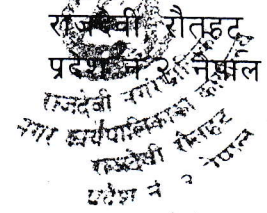 राजदेवी रौतहट
प्रदेश नं २ नेपाल
राजदेवी नगरपालिका
नगर कार्यपालिकाको कार्यालय
राजदेवी रौतहट
प्रदेश नं २ नेपाल